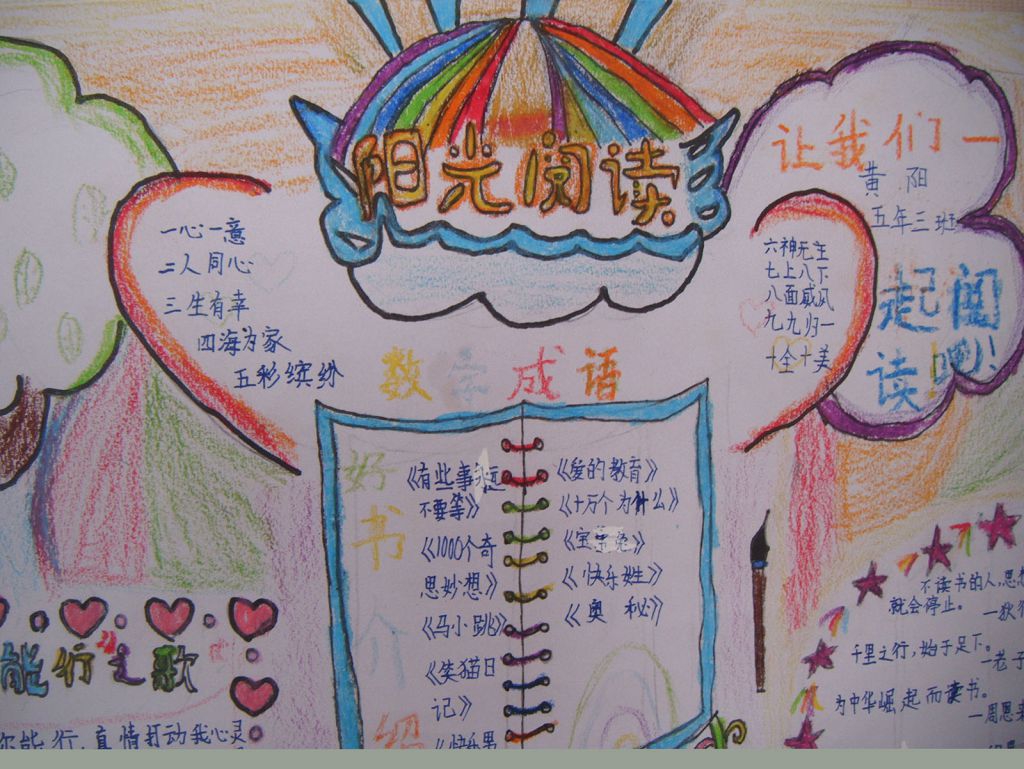 阳光阅读
让我们一
黄 阳
五年三班
起阅
读吧!
一心一意
二人同心
三生有幸
四海为家
五彩缤纷
六神无主
七上八下
八面威风
九九归一
十全十美
数字成语
好书介绍
《有些事
不要等》
《1000个奇
思妙想》
《马小跳》
《笑猫日
记》
《快乐男
《爱的教育》
《十万个为什么》
《快乐姓》
《奥 秘》
能行之歌
你能行,真情打动我心灵
不读书的人,思想
就会停止。
千里之行,始于足下。
—老子
为中华崛起而读书。
—周恩来